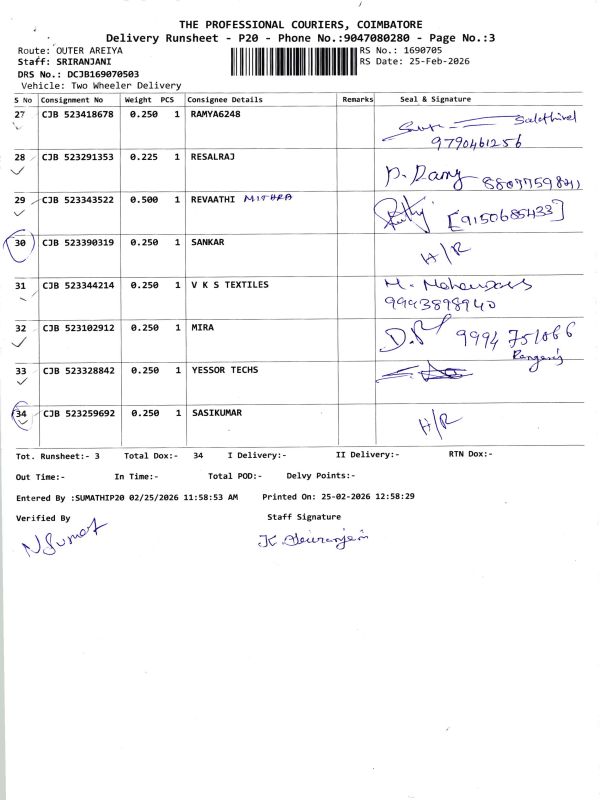 THE PROFESSIONAL COURIERS, COIMBATORE
Delivery Runsheet - P20 - Phone No.:9047080280 - Page No.:3
Route: OUTER AREIYA RS No.: 1690705
Staff: SRIRANJANI RS Date: 25-Feb-2026
DRS No.: DCJB169070503
Vehicle: Two Wheeler Delivery
S No Consignment No Weight PCS Consignee Details Remarks Seal & Signature
27 CJB 523418678 0.250 1 RAMYA6248
9790461256
28 CJB 523291353 0.225 1 RESALRAJ
29 CJB 523343522 0.500 1 REVAATHI MITHRA [9150685433]
30 CJB 523390319 0.250 1 SANKAR H/R
31 CJB 523344214 0.250 1 V K S TEXTILES
9993898940
32 CJB 523102912 0.250 1 MIRA 9994 751066
33 CJB 523328842 0.250 1 YESSOR TECHS
34 CJB 523259692 0.250 1 SASIKUMAR H/R
Tot. Runsheet:- 3 Total Dox:- 34 I Delivery:- II Delivery:- RTN Dox:-
Out Time:- In Time:- Total POD:- Delvy Points:-
Entered By :SUMATHIP20 02/25/2026 11:58:53 AM Printed On: 25-02-2026 12:58:29
Verified By Staff Signature